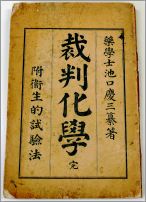 藥學士池口慶三纂著
裁判化學 完
附衞生的試驗法